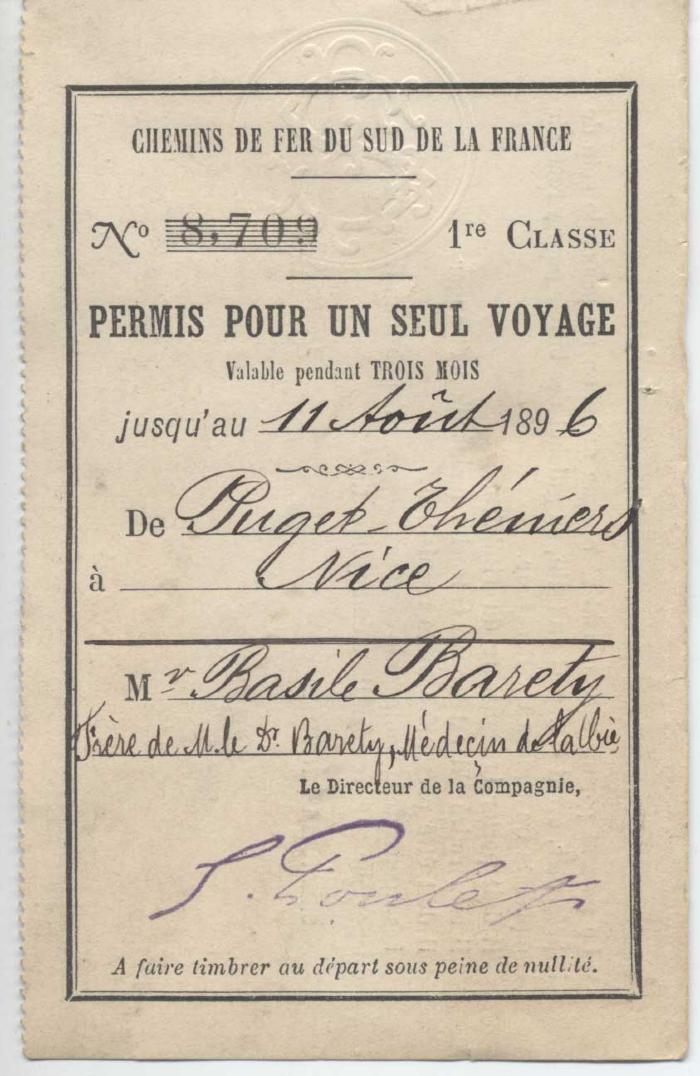 CHEMINS DE FER DU SUD DE LA FRANCE
No 8,709 1re CLASSE
PERMIS POUR UN SEUL VOYAGE
Valable pendant TROIS MOIS
jusqu'au 11 Août 1896
De Puget-Théniers
à Nice
Mr Basile Barety
Frère de M. le Dr. Barety, Médecin de la Cie
Le Directeur de la Compagnie,
A faire timbrer au départ sous peine de nullité.